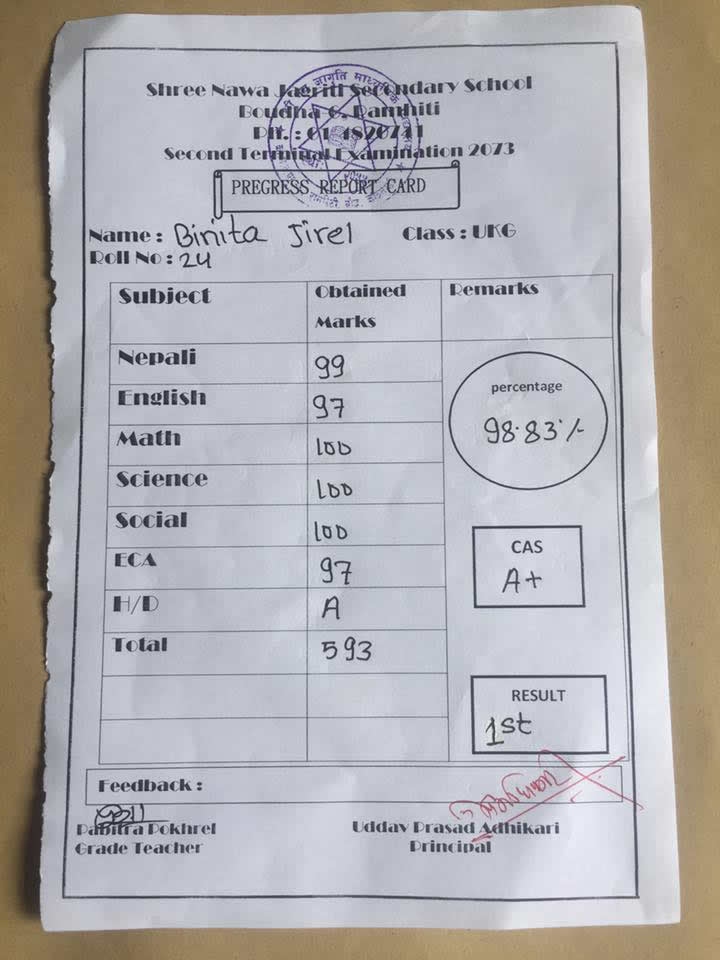 Shree Nawa Jagriti Secondary School
Boudha-6, Ramhiti
Ph. : 01-4820741
Second Terminal Examination 2073
PREGRESS REPORT CARD
Name : Binita Jirel Class : UKG
Roll No : 24
Subject Obtained Marks Remarks
Nepali 99
English 97
Math 100
Science 100
Social 100
ECA 97
H/D A
Total 593
percentage
98.83%
CAS
A+
RESULT
1st
Feedback :
Pabitra Pokhrel Uddav Prasad Adhikari
Grade Teacher Principal
जागृति माध्यमिक